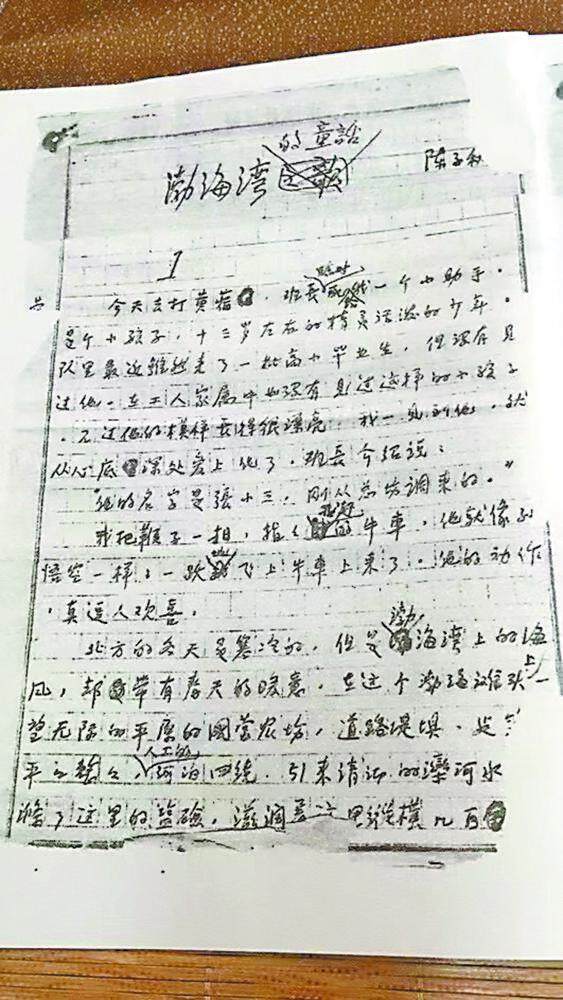 的童話
渤海湾
陈子秋
1
今天去打黄蓿，班长临时派给我一个小助手。
是个小孩子，十三岁左右的精灵活泼的少年。
队里最近虽然来了一批高小毕业生，但没有见
过他。在工人家属中也没有见过这样的小孩子
。不过他的模样长得很漂亮，我一见到他，就
从心底深处爱上他了。班长介绍说：
“他的名字是張十三，刚从总场调来的。”
我把鞭子一扣，指的牛車，他就像孙
悟空一样，一跃飞上牛車上来了。他的动作
，真逗人欢喜。
北方的冬天是寒冷的，但是渤海湾上的海
风，却带有春天的暖意。在这个渤海滩头上一
望无际的平原的國营农场，道路堤堨，是
平平整整，人工的河泊四绕，引来清沏的滦河水
了这里的盐碱，滋润着这里縱横几百